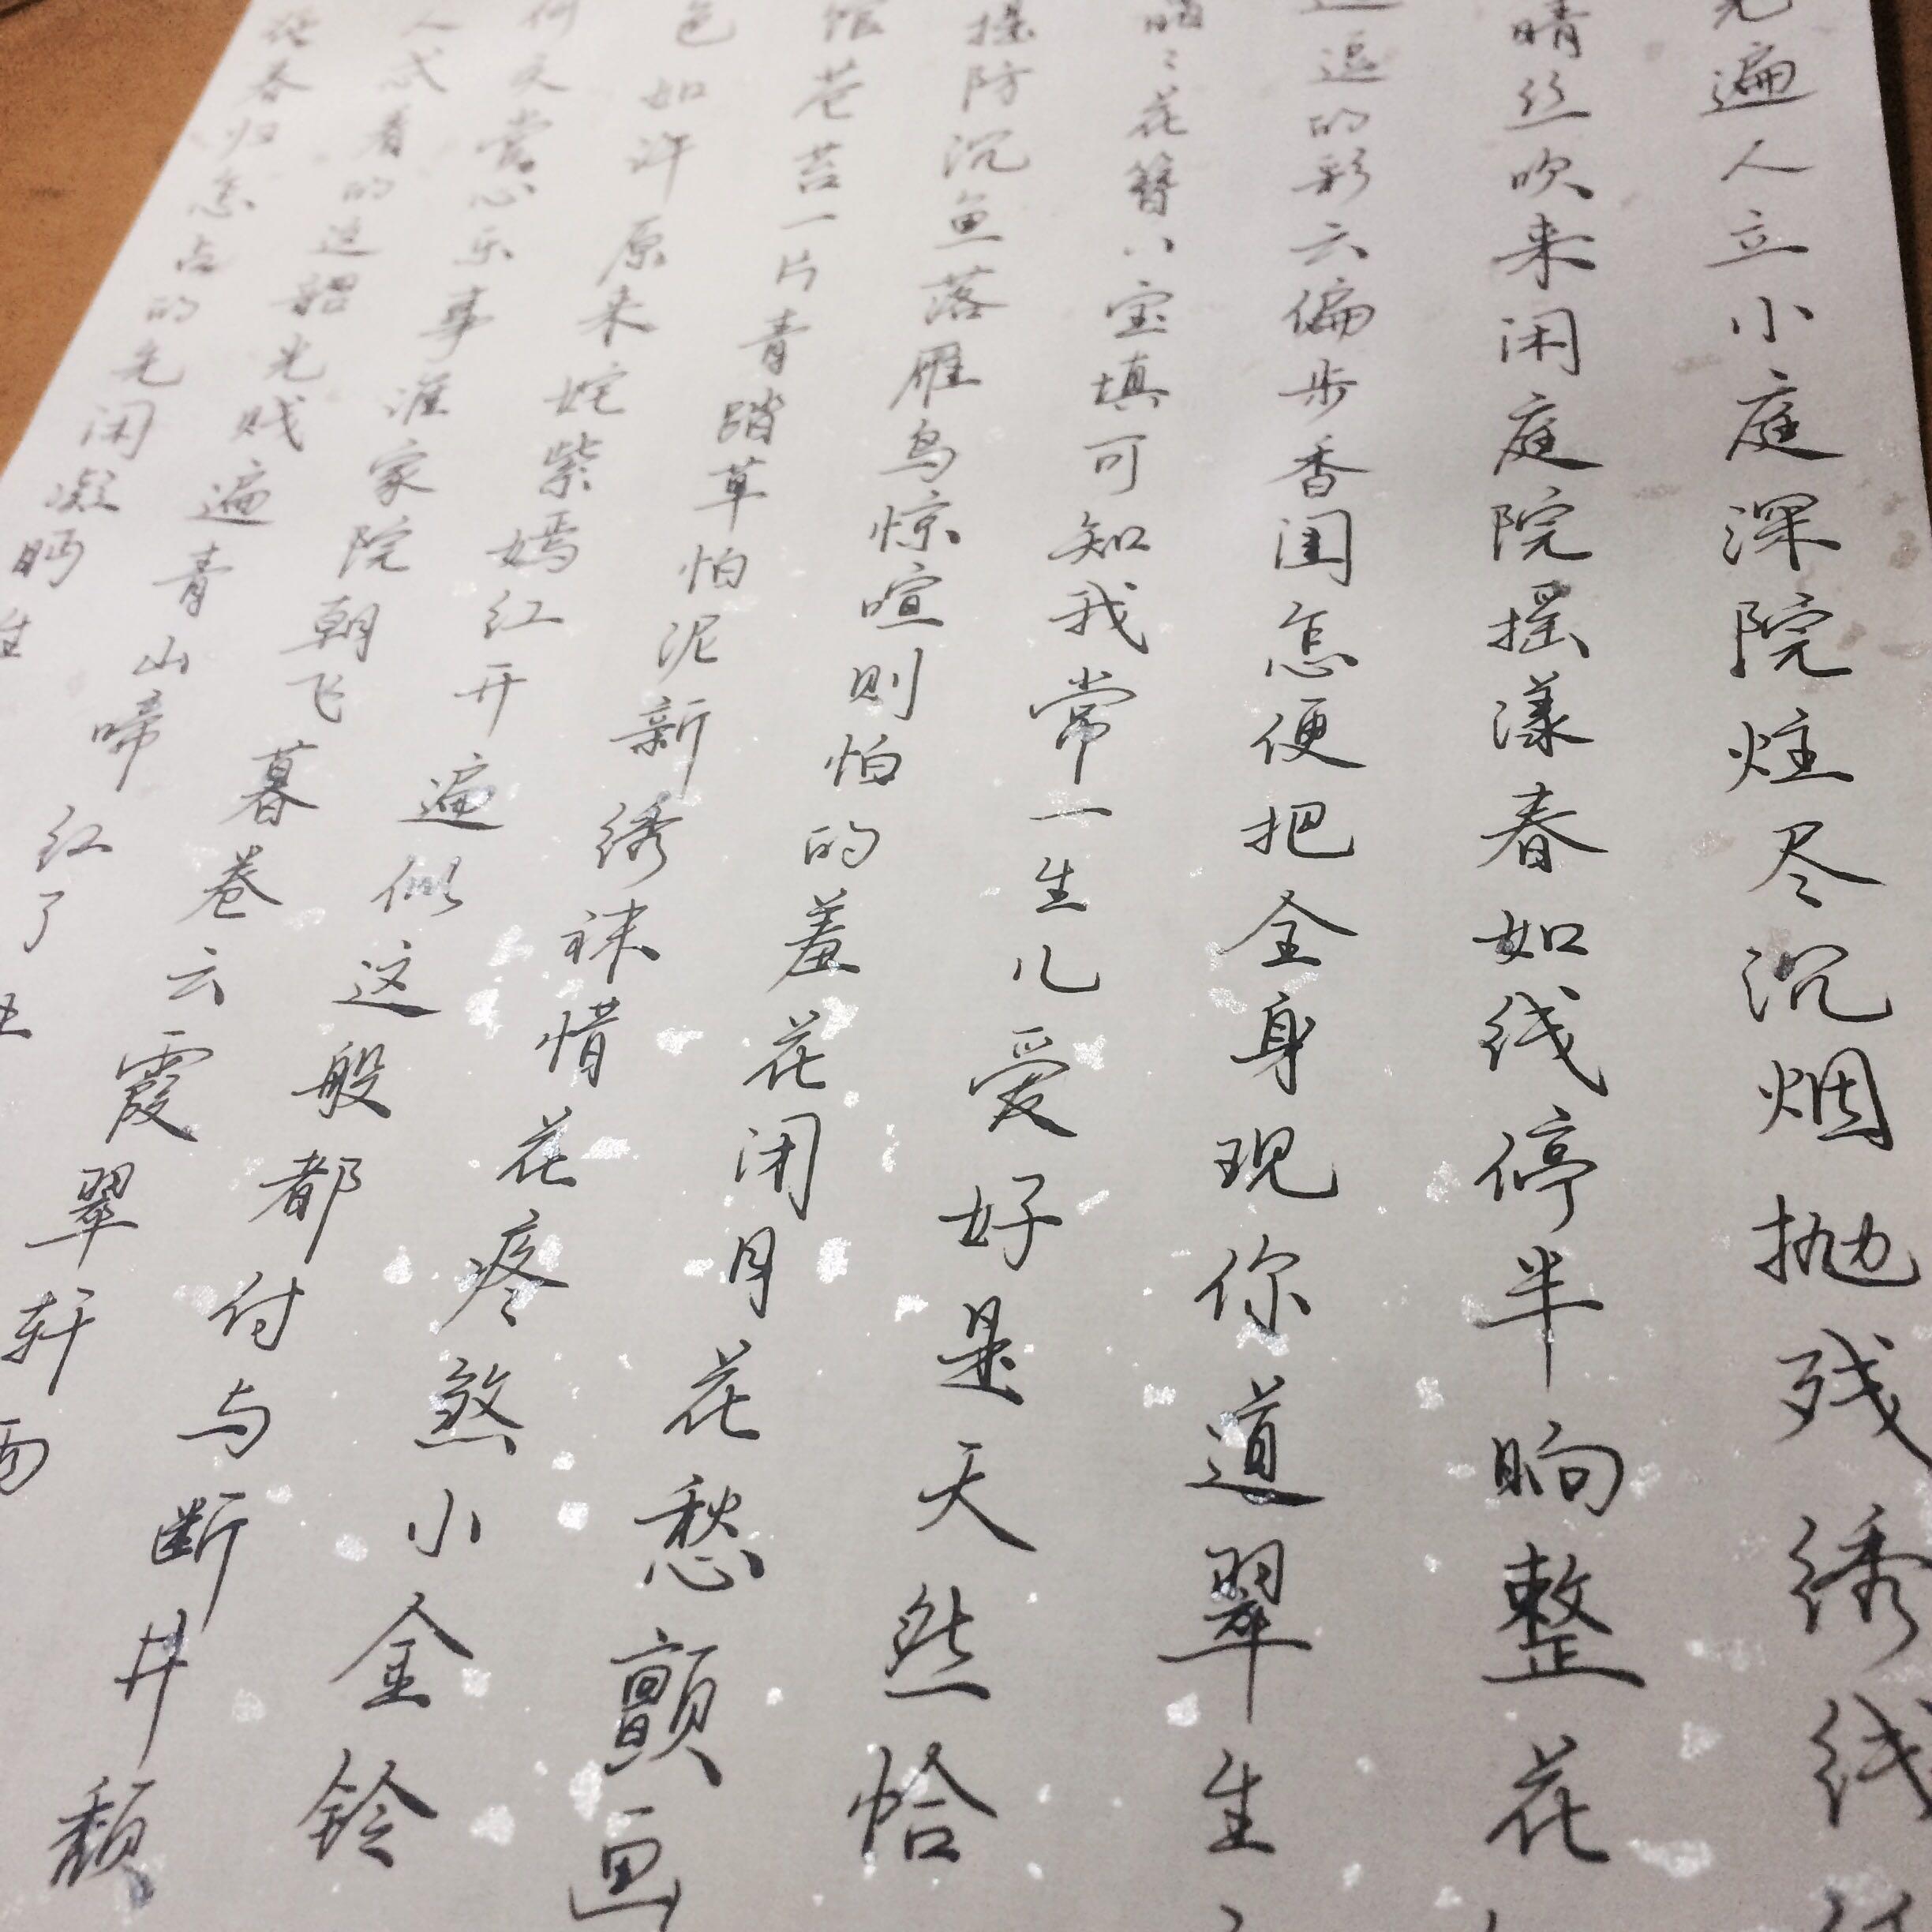 光遍人立小庭深院炷尽沉烟抛残绣线
晴丝吹来闲庭院摇漾春如线停半晌整花
逗的彩云偏步香闺怎便把全身现你道翠生
晶〻花簪八宝填可知我常一生儿爱好是天然恰
提防沉鱼落雁鸟惊喧则怕的羞花闭月花愁颤画
馆苍苔一片青踏草怕泥新绣袜惜花疼煞小金铃
色如许原来姹紫嫣红开遍似这般都付与断井颓
何天赏心乐事谁家院朝飞暮卷云霞翠轩雨
人忒看的这韶光贱遍青山啼红了
春归怎占的先闲凝眄生